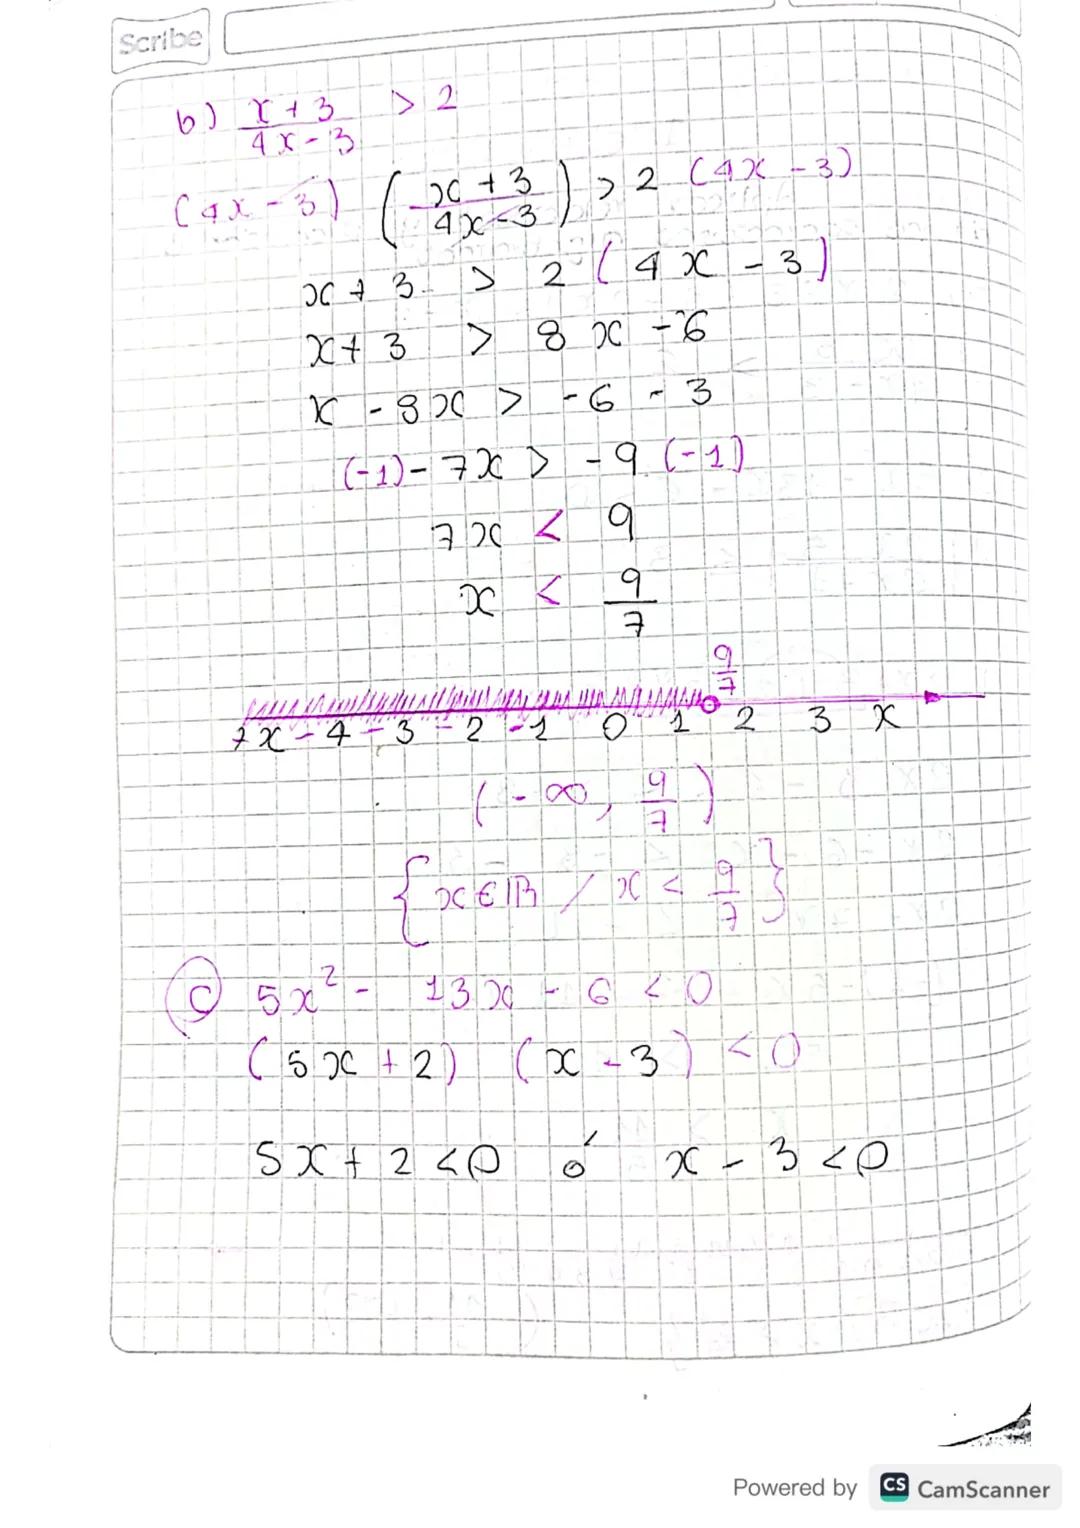 Scribe
b) x + 3 / 4x - 3 > 2
(4x - 3) (x + 3 / 4x - 3) > 2 (4x - 3)
x + 3 > 2 (4x - 3)
x + 3 > 8x - 6
x - 8x > -6 - 3
(-1) - 7x > -9 (-1)
7x < 9
x < 9/7
9/7
7x -4 -3 -2 -1 0 1 2 3 x
(-∞, 9/7)
{x ∈ ℝ / x < 9/7}
c) 5x² - 13x - 6 < 0
(5x + 2) (x - 3) < 0
5x + 2 < 0 ó x - 3 < 0
Powered by CS CamScanner